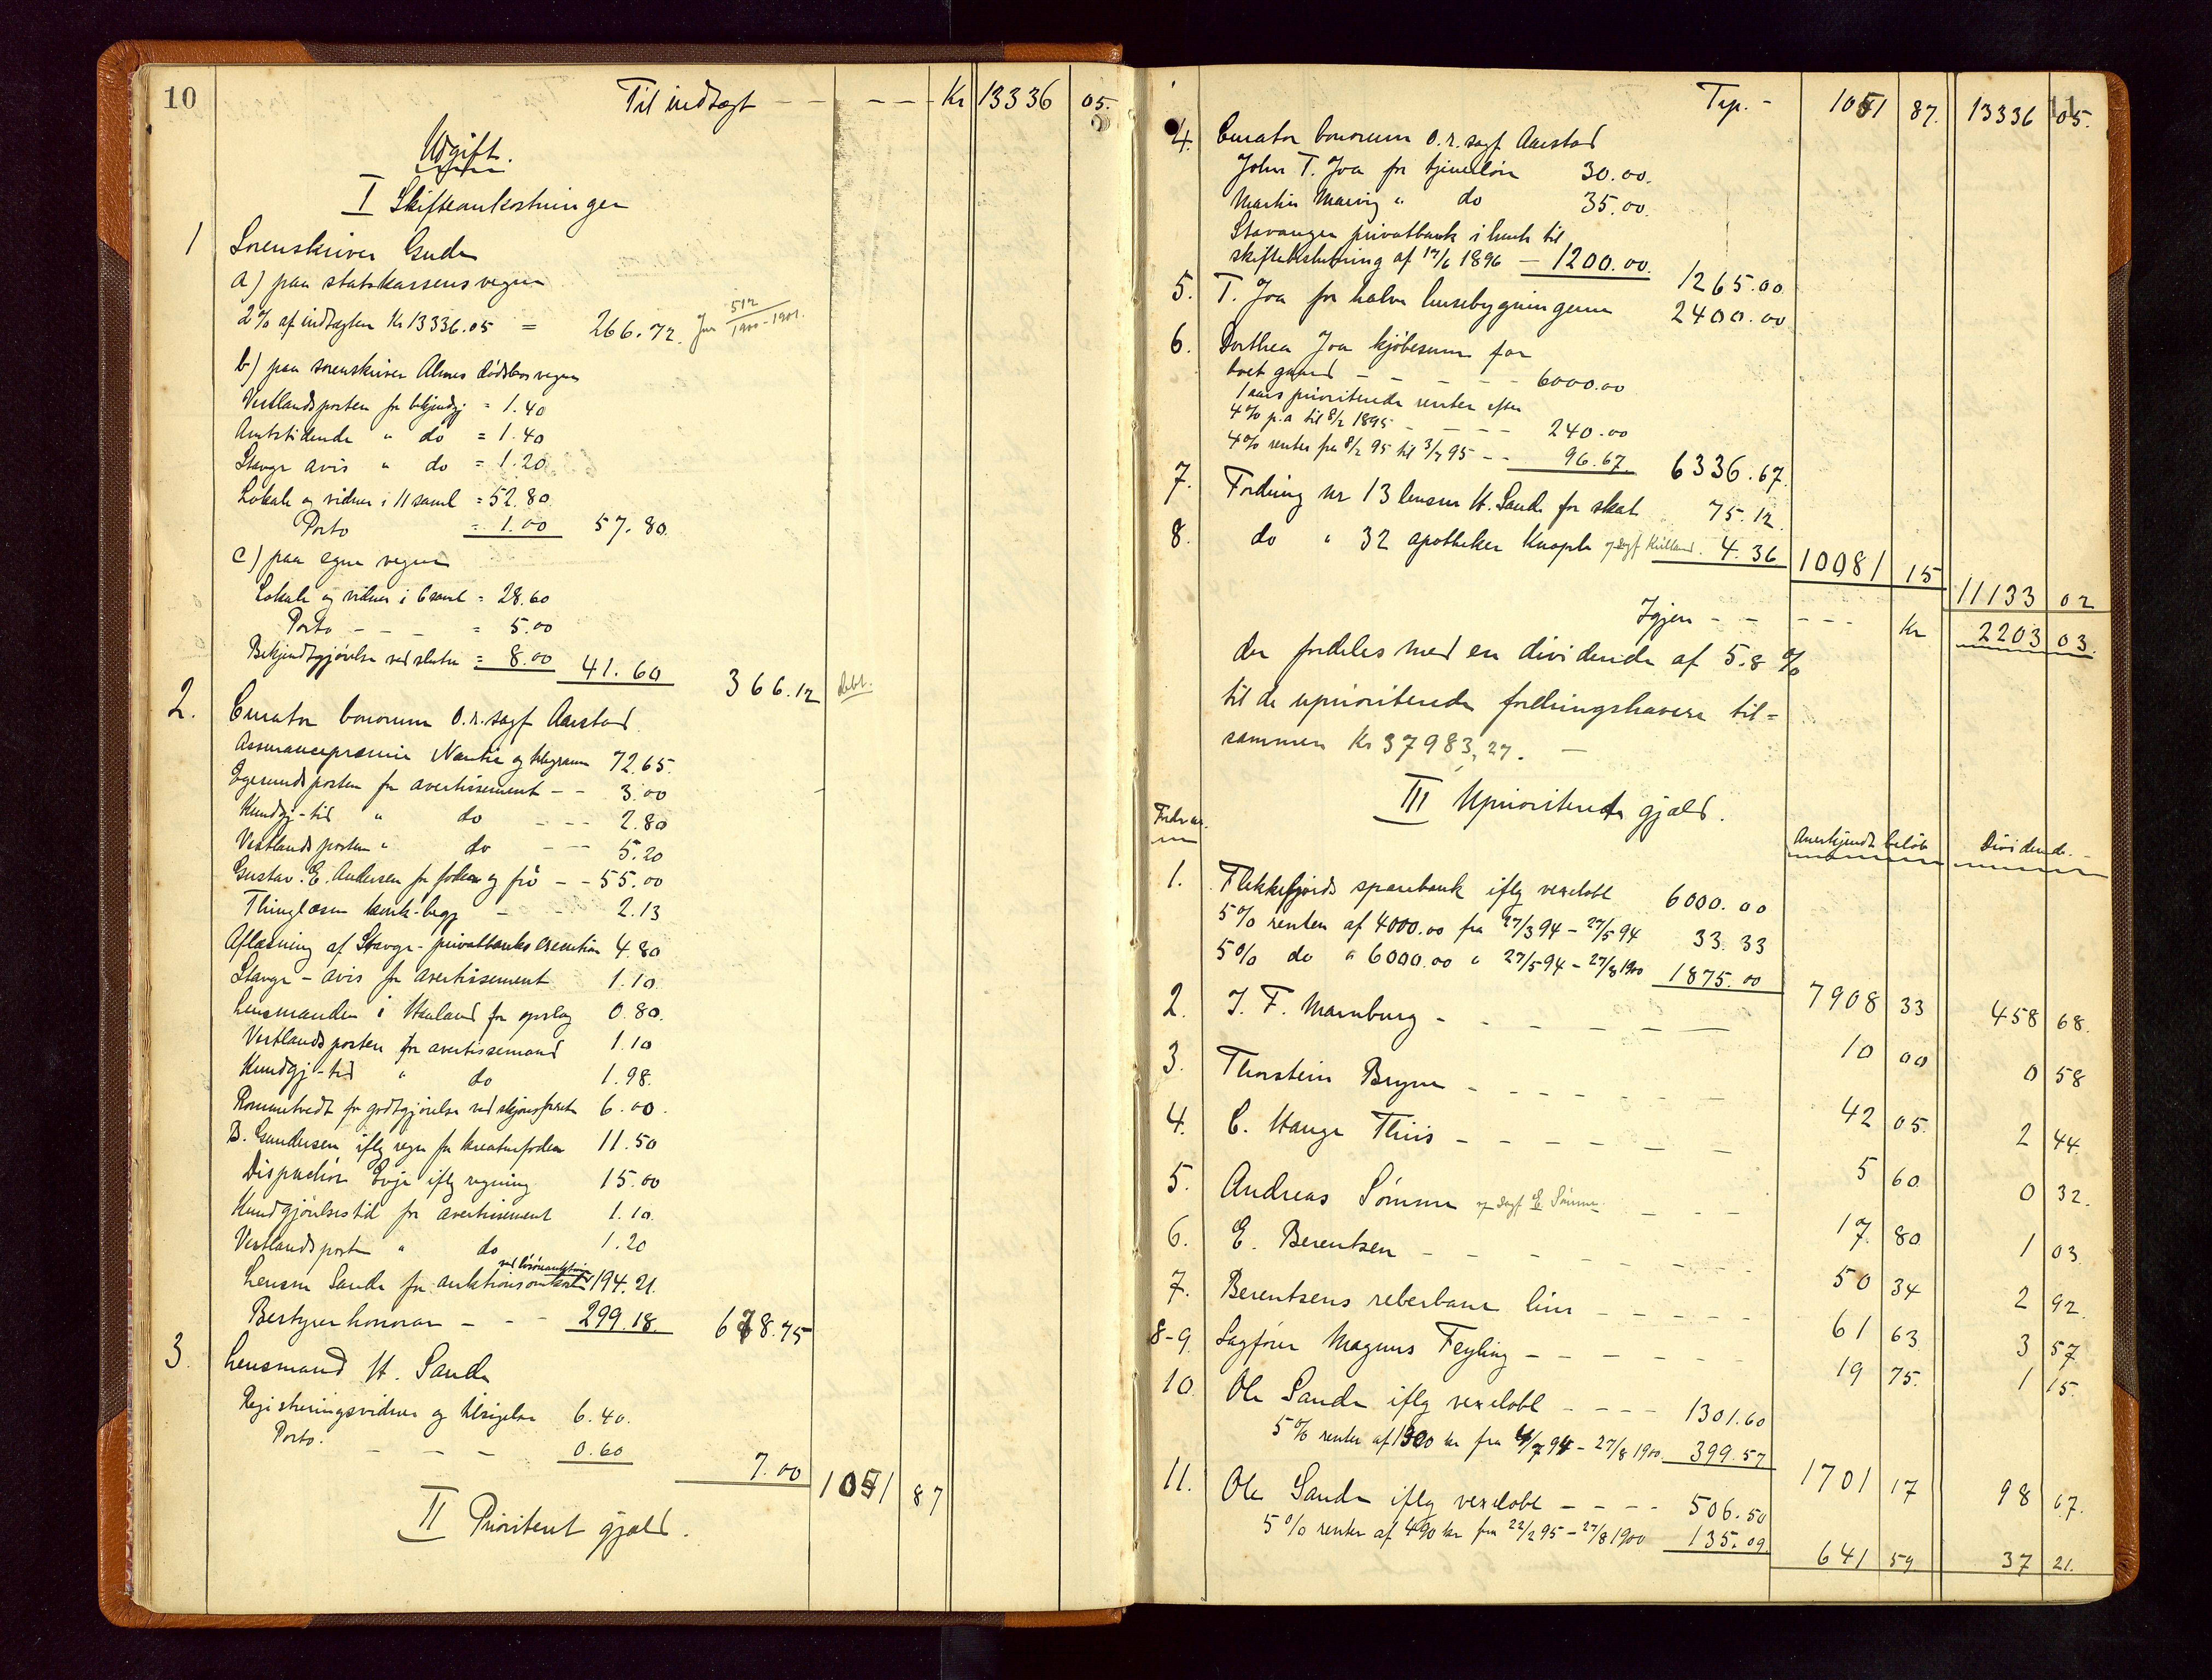 10
Til indtægt - - - - - Kr 13336 05.
Udgift.
I Skifteomkostninger
1 Sorenskriver Gude
a) paa statskassens vegne
2% af indtægten Kr 13336.05 = 266.72. Jnr 512/1900-1901.
b) paa sorenskriver Almes dødsbos vegne
Vestlandsposten for bekjendtgj = 1.40
Amtstidende " do = 1.40
Stavgr avis " do = 1.20
Lokale og vidner i 11 saml = 52.80.
Porto = 1.00 57.80.
c) paa egne vegne
Lokale og vidner i 6 saml = 28.60
Porto - - - = 5.00
Bekjendtgjørelse ved slutn = 8.00 41.60 366.12 debt.
2. Curator bonorum O.r.sagf Aarstad.
Assurancepræmie Nærbø og telegram 72.65.
Egersundsposten for avertissement - - 3.00
Kundgj-tid " do - - - 2.80
Vestlandsposten " do - - - 5.20
Gustav. E. Andersen for foder og frø - - 55.00
Thinglæsn konk-begj - - 2.13
Aflæsning af Stavgr-privatbanks execution 4.80
Stavgr-avis for avertissement 1.10.
Lensmanden i Haaland for opslag 0.80.
Vestlandsposten for avertissemand 1.10
Kundgj-tid " do 1.98.
for godtgjørelse ved skjønsforretn 6.00.
B. Gundersen iflg regn for kreaturfoder 11.50
Dispachør Evje iflg regning 15.00
Kundgjørelsestid for avertissement 1.10.
Vestlandspost " do 1.20
ved løsøreauktion
Lensm Sande for auktionsomkostn 194.21.
Bestyrer honorar - - - 299.18. 678.75
3. Lensmand H. Sande
Registreringsvidner og tilsigelse 6.40.
Porto. - - - 0.60 7.00 1051 87
II Prioritert gjæld.
11
Trp. - 1051 87. 13336 05.
4. Curator bonorum O.r.sagf Aarstad
John T. Joa for tjenerløn 30.00.
Martin Maavig " do 35.00.
Stavanger privatbank i henh til
skiftebeslutning af 17/6 1896 - 1200.00. 1265.00
5. T. Joa for halve husebygningerne 2400.00
6. Dorthea Joa kjøbesum for
boet gaard - - - - - 6000.00
1 aars prioriterede renter efter
4% p.a til 8/2 1895 - - - - 240.00
4% renter fra 8/2 95 til 3/7 95 - - 96.67. 6336.67.
7. Fordring nr 13 lensm H. Sande for skat 75.12.
8. do " 32 apotheker Knoph v. sagf Kielland. 4.36 10081 15 11133 02
Igjen - - - - - Kr 2203 03.
der fordeles med en dividende af 5.8%
til de uprioriterede fordringshavere til=
sammen Kr 37983,27. -
III Uprioriteret gjæld.
Fordr nr. Anerkjendt beløb Dividende. -
1. Flekkefjords sparebank iflg vexelobl 6000.00
5% renter af 4000.00 fra 27/3 94 - 27/5 94 33.33
5% do " 6000.00 " 27/5 94 - 27/8 1900 1875.00 7908 33 458 68.
2. J. F. Marnburg - - - - - - 10 00 0 58
3. Thorstein Bryne - - - - - - 42 05. 2 44.
4. C. Hauge Thiis - - - - - - 5 60. 0 32.
5. Andreas Sømme v. sagf E Sømme. - - - 17. 80. 1 03.
6. E. Berentsen - - - - - - 50 34 2 92.
7. Berentsens reberbane linr - - - - - 61 63. 3 57
8-9. Sagfører Magnus Feyling - - - - - - 19 75. 1 15.
10. Ole Sande iflg vexelobl - - - - 1301.60
5% renter af 1300 kr fra 4/7 94 - 27/8 1900. 399.57 1701 17 98 67.
11. Ole Sande iflg vexelobl - - - - 506.50
5% renter af 490 kr fra 22/2 95 - 27/8 1900 135.09. 641 59. 37 21.